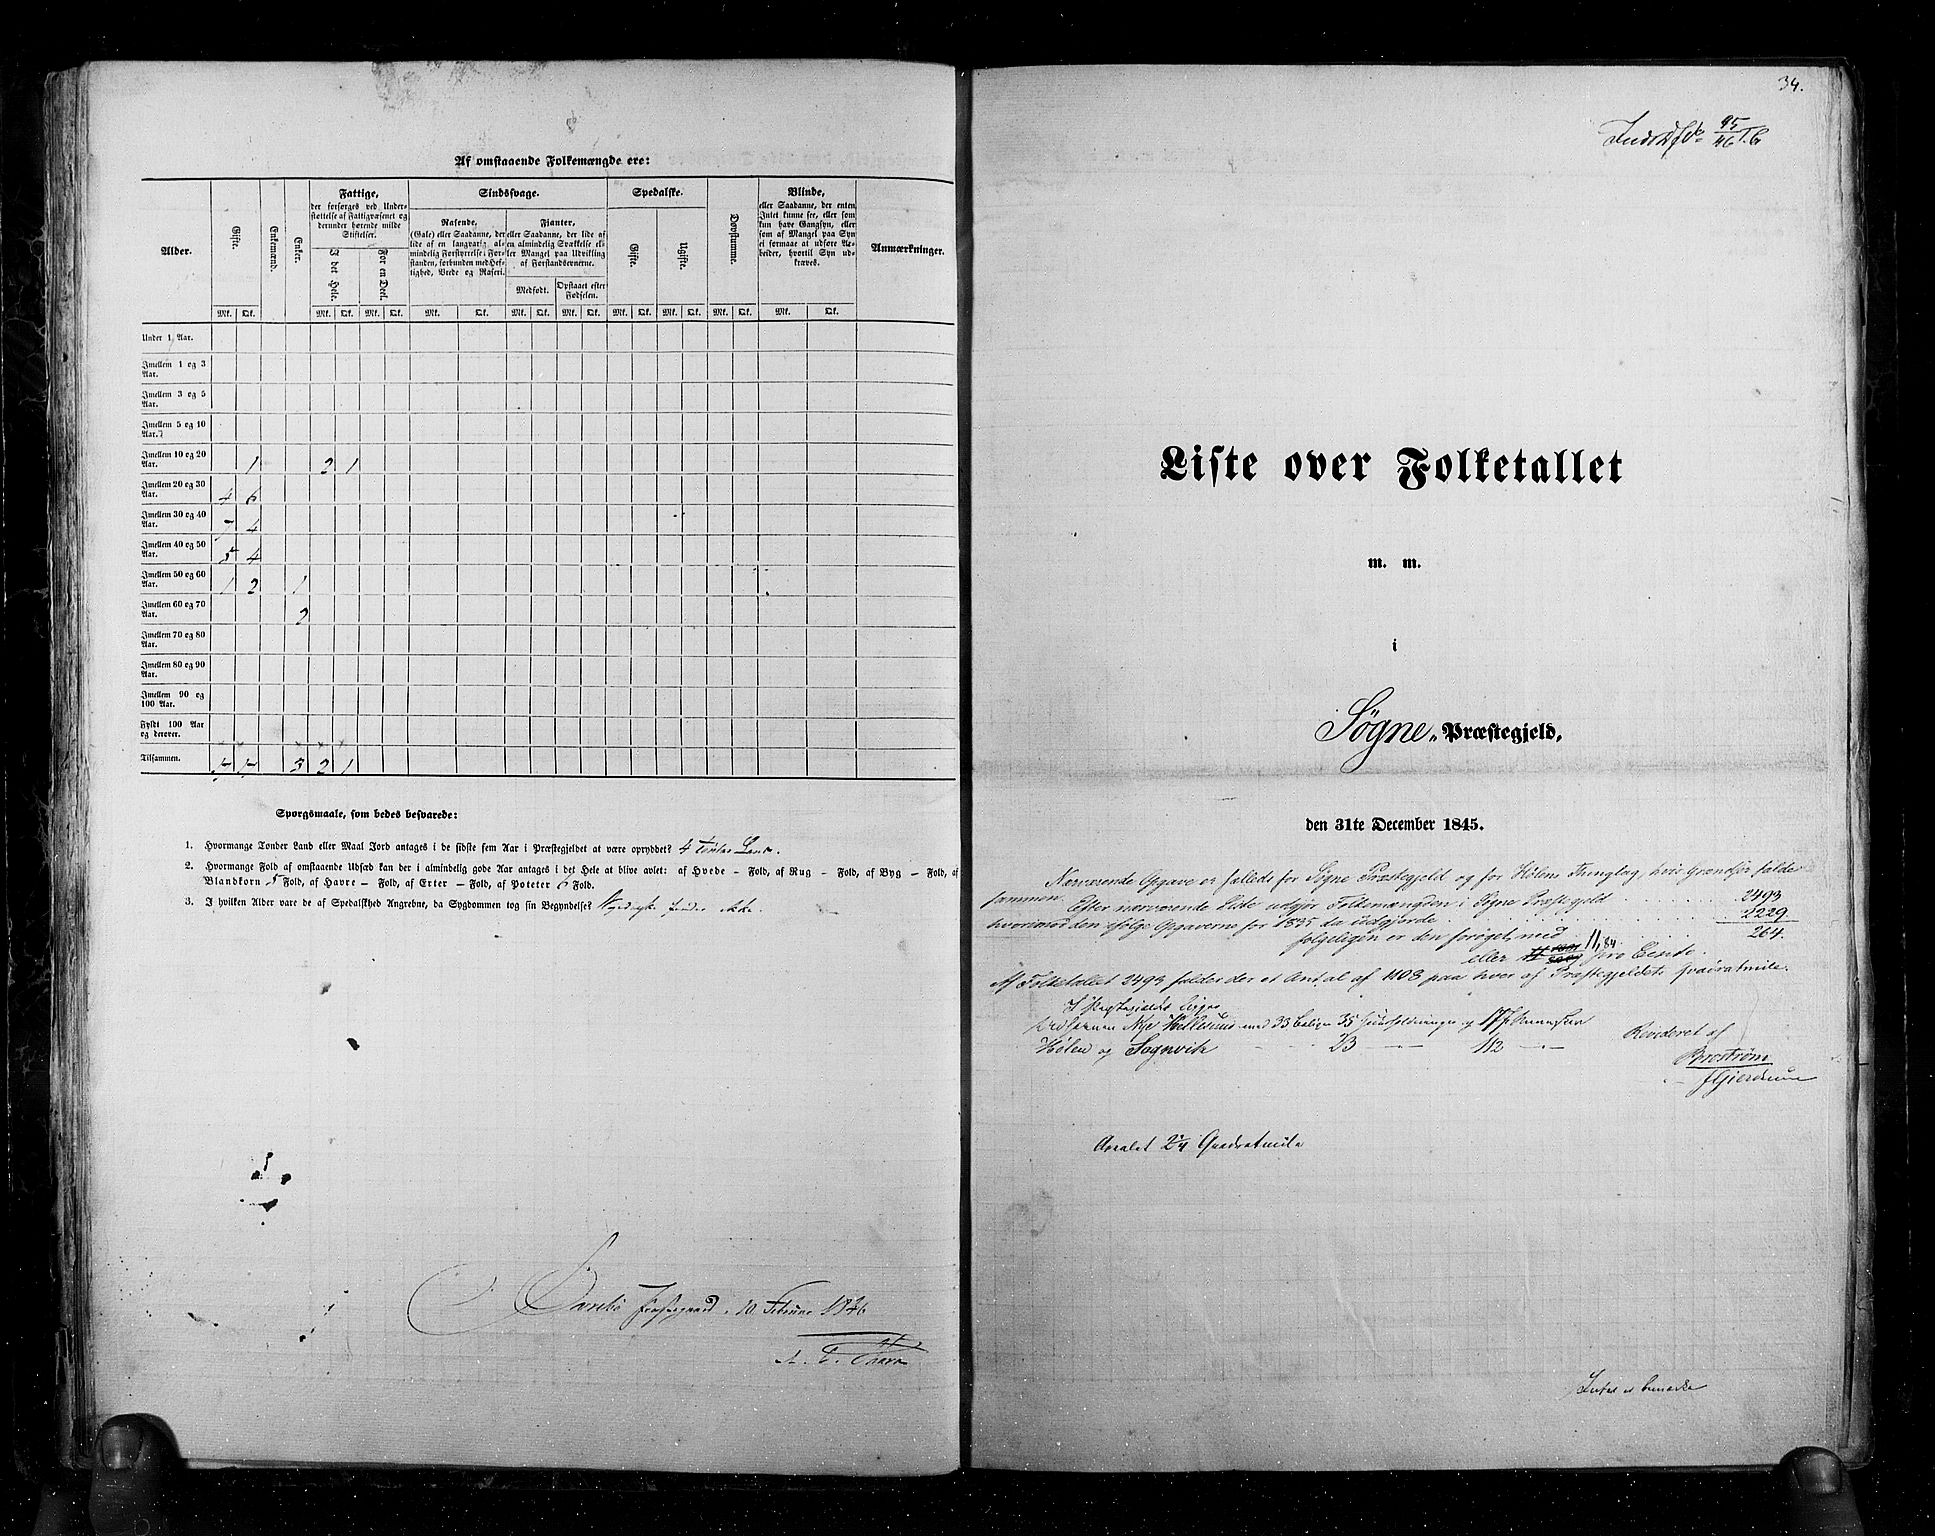 Af omstaaende Folkemængde ere:
Alder.
Gifte.
Enkemænd.
Enker.
Fattige,
der forsørges ved Under-
støttelse af Fattigvæsenet og
derunder hørende milde
Stiftelser.
I det Hele.
For en Deel.
Sindssvage.
Rasende,
(Gale) eller Saadanne, der
lide af en langvarig, al-
mindelig Forstyrrelse i For-
standen, forbunden med Hef-
tighed, Vrede og Raseri.
Fjanter,
eller Saadanne, der lide af
en almindelig Svækkelse el-
ler Mangel paa Udvikling
af Forstandsevnerne.
Medfødt.
Opstaaet efter
Fødselen.
Spedalske.
Gifte.
Ugifte.
Døvstumme.
Blinde,
eller Saadanne, der enten
Intet kunne see, eller som
kun have Gangsyn, eller
som af Mangel paa Syn
ei formaae at udføre Ar-
beider, hvortil Syn ud-
kræves.
Anmærkninger.
Mk. Qk. Mk. Qk. Mk. Qk. Mk. Qk. Mk. Qk. Mk. Qk. Mk. Qk. Mk. Qk. Mk. Qk. Mk. Qk.
Under 1 Aar.
Imellem 1 og 3
Aar.
Imellem 3 og 5
Aar.
Imellem 5 og 10
Aar.
Imellem 10 og 20
Aar. 1 2 1
Imellem 20 og 30
Aar. 4 6
Imellem 30 og 40
Aar. 7 4
Imellem 40 og 50
Aar. 5 4
Imellem 50 og 60
Aar. 1 2 1
Imellem 60 og 70
Aar. 2
Imellem 70 og 80
Aar.
Imellem 80 og 90
Aar.
Imellem 90 og
100 Aar.
Fyldt 100 Aar
og derover.
Tilsammen. 17 17 3 2 1
Spørgsmaale, som bedes besvarede:
1. Hvormange Tønder Land eller Maal Jord antages i de sidste fem Aar i Præstegjeldet at være opryddet? 4 Tønder Land.
2. Hvormange Fold af omstaaende Udsæd kan der i almindelig gode Aar antages i det Hele at blive avlet: af Hvede – Fold, af Rug – Fold, af Byg – Fold, af
Blandkorn 5 Fold, af Havre – Fold, af Erter – Fold, af Poteter 6 Fold.
3. I hvilken Alder vare de af Spedalskhed Angrebne, da Sygdommen tog sin Begyndelse? findes ikke.
10 Februar 1846
34.
95
46
Liste over Folketallet
m. m.
i
Søgne Præstegjeld,
den 31te December 1845.
Nærværende Opgave er fælleds for Søgne Præstegjeld og for Hølens Tinglag, hvis Grændser falde
sammen.
Efter nærværende Liste udgjør Folkemængden i Søgne Præstegjeld 2493
hvorimod den ifølge Opgaverne for 1835 da udgjorde 2229
følgeligen er den forøget med 264.
eller 11,84 pro Cento.
Af Folketallet 2493 falder der et Antal af 1108 paa hver af Præstegjeldets Qvadratmile.
I Præstegjeldet ligge
Udhavnen Nye Hellesund med 33 Boliger 35 Huusholdninger og 177 Mennesker
Hølen og Sognvik 23 112
Revideret af
Broström
Gjerdrum
Arealet 2¼ Quadratmile
Intet at bemærke